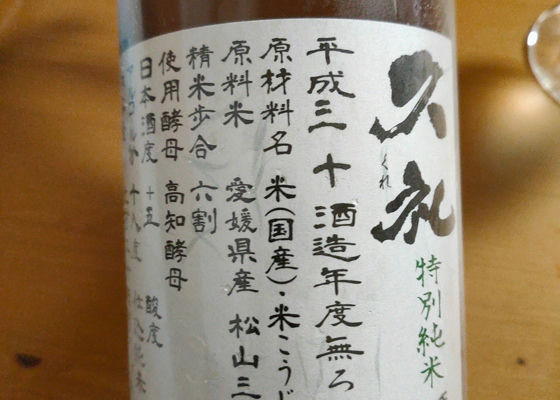 久礼
くれ
特別純米
平成三十酒造年度無ろ
原材料名 米(国産)・米こうじ
原料米 愛媛県産 松山三
精米歩合 六割
使用酵母 高知酵母
日本酒度 +五 酸度